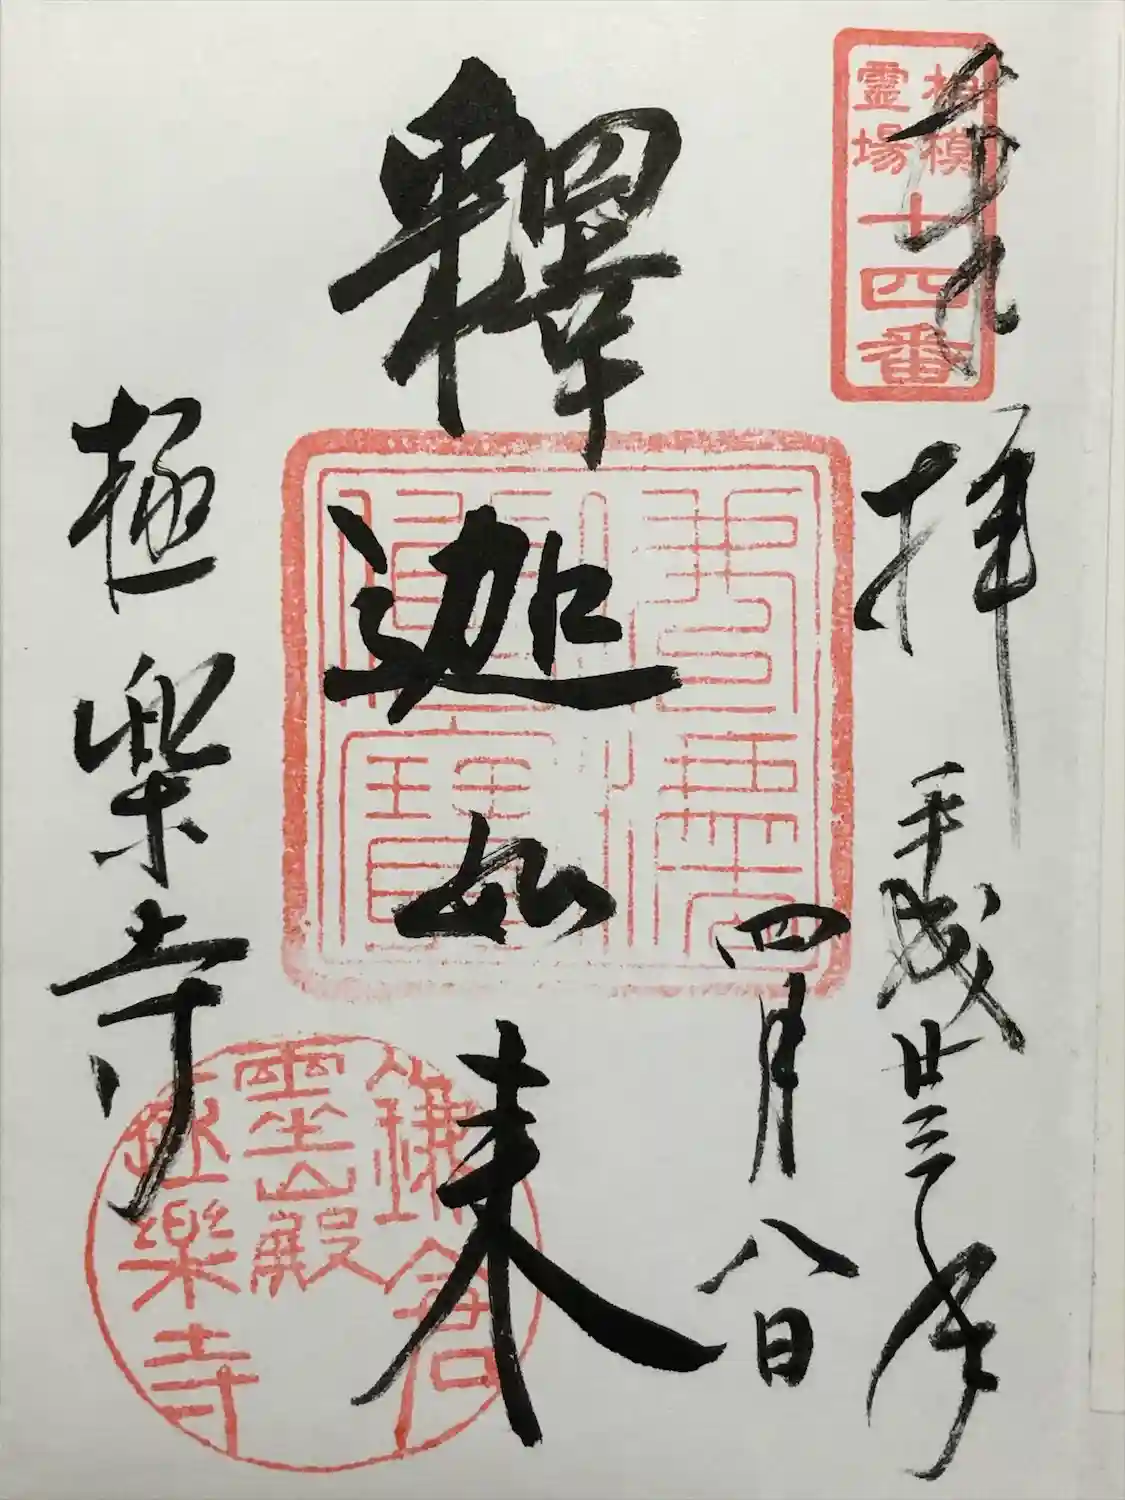 奉拝
平成廿三年
四月八日
釋迦如来
極楽寺
相模
霊場
十四番
佛法
僧寳
鎌倉
靈山殿
極樂寺